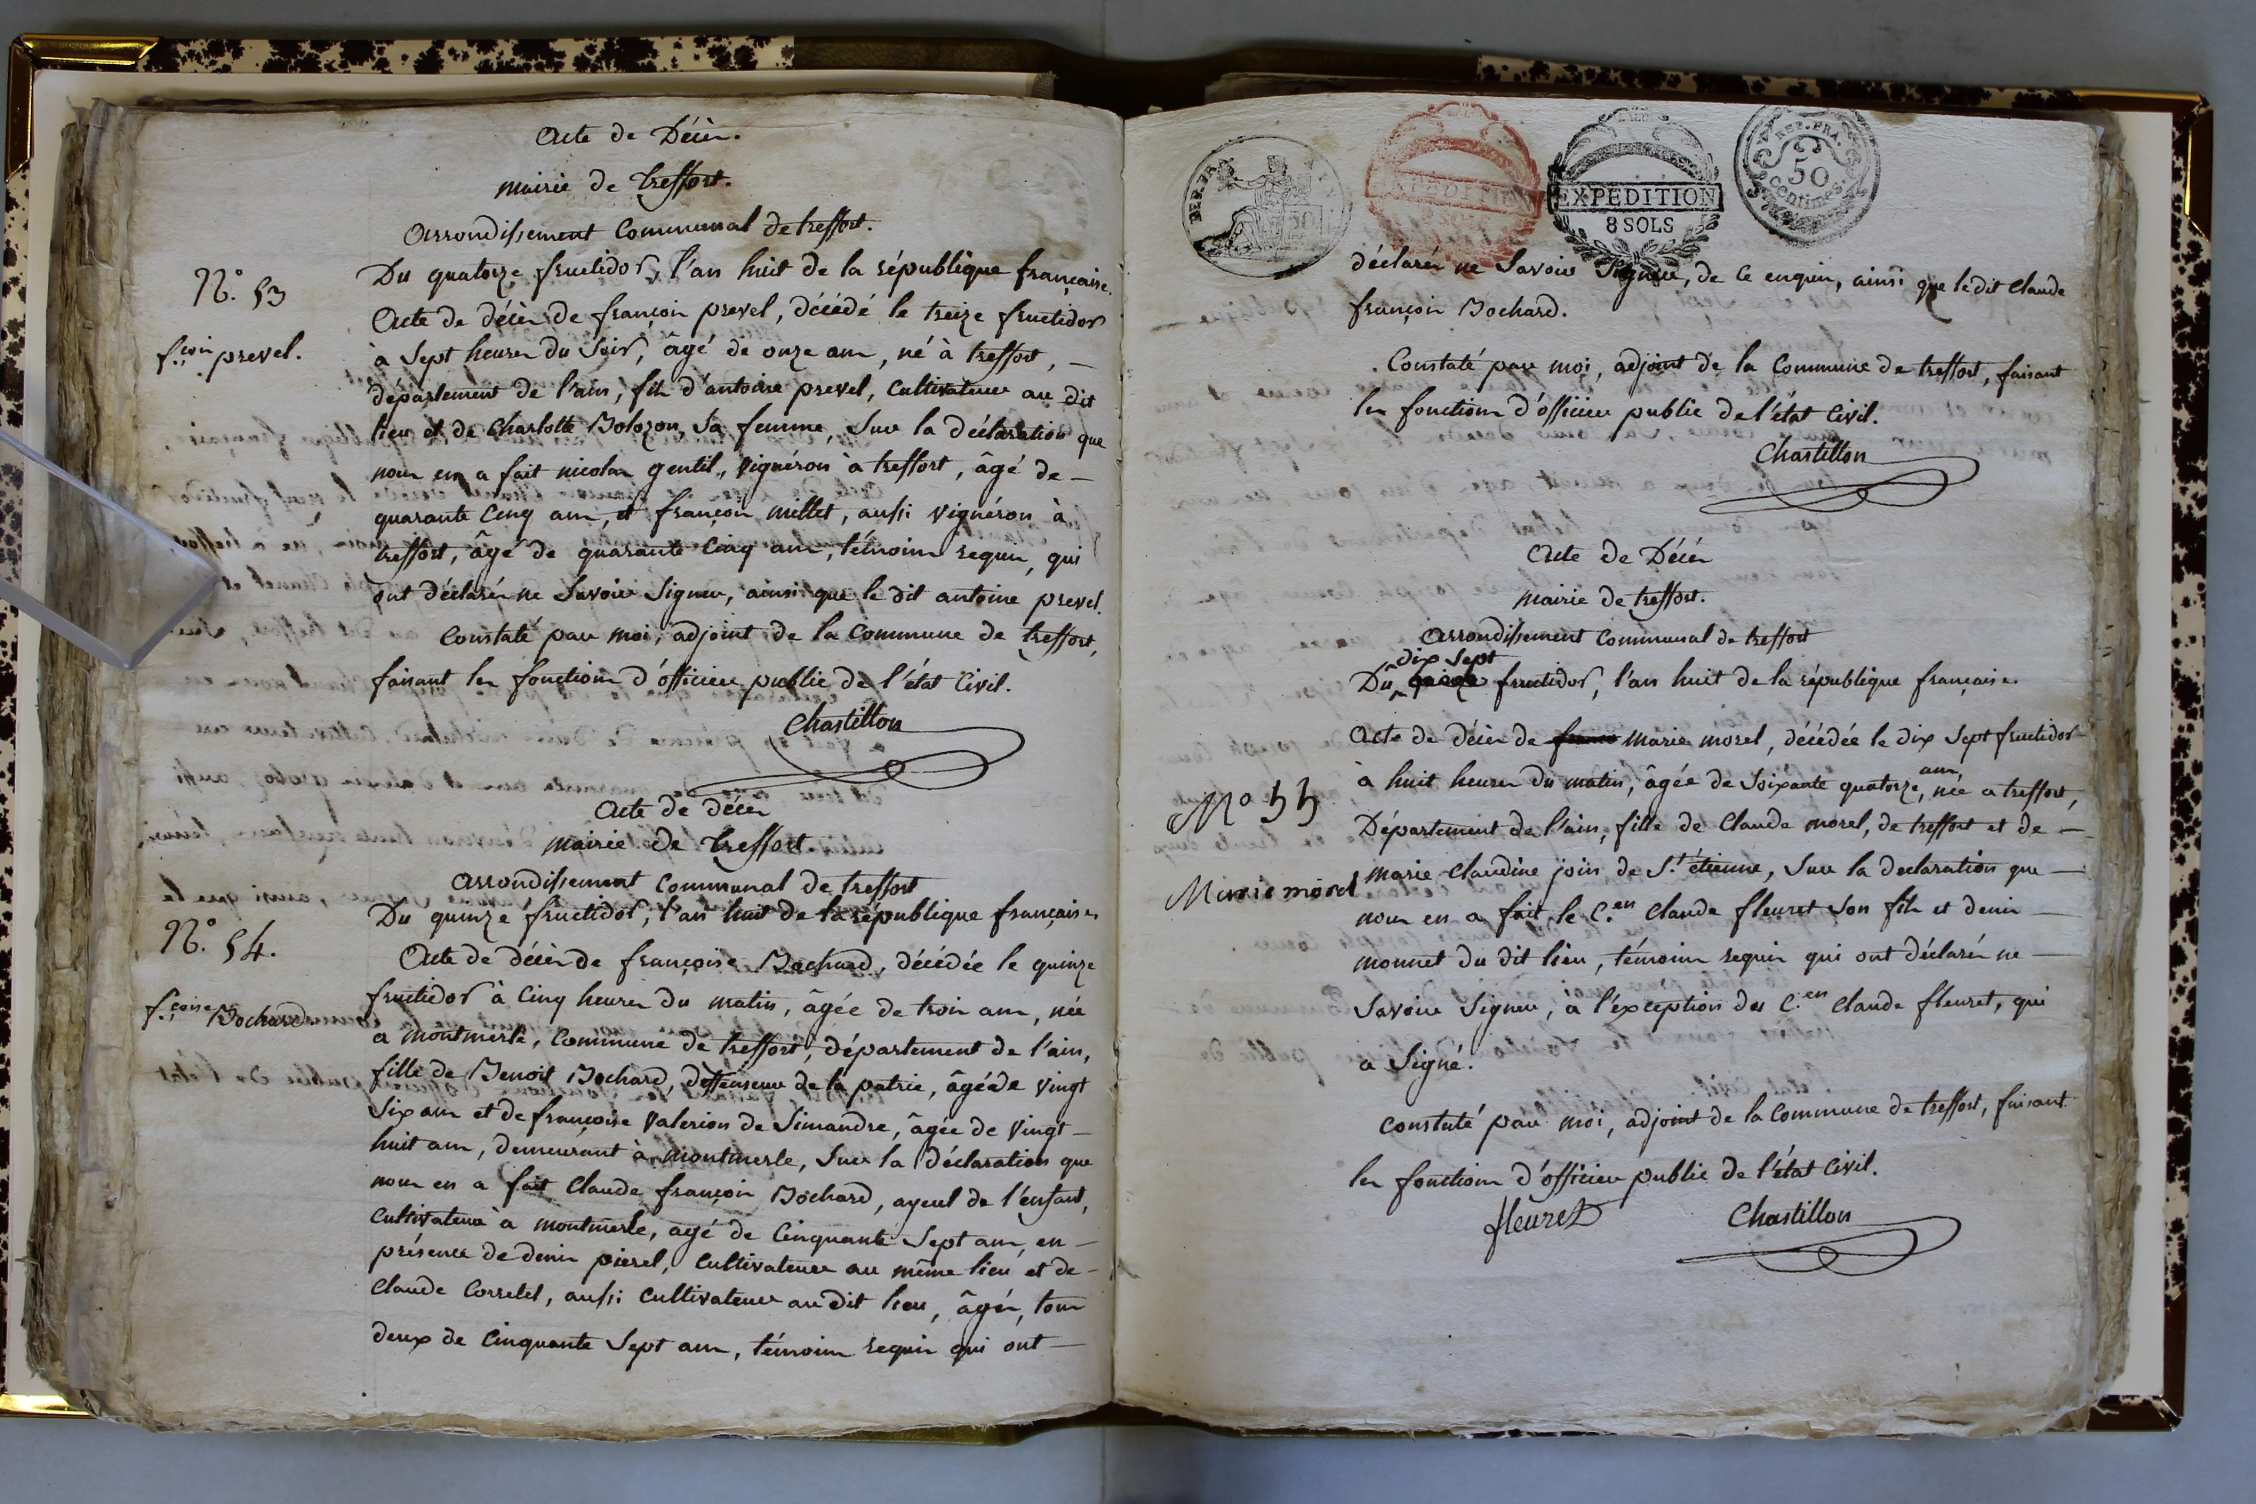 Acte de Décès.
mairie de treffort.
Arrondissement Communal de treffort.
N.° 53
f.çois prevel.
Du quatorze fructidor, l'an huit de la république française.
Acte de décès de françois prevel, décédé le treize fructidor
à Sept heures du Soir, âgé de onze ans, né à treffort, —
département de l'ain, fils d'antoine prevel, Cultivateur au dit
lieu et de Charlotte Bolozon, Sa femme, Sur la déclaration que
nous en a fait nicolas gentil, vignéron à treffort, âgé de —
quarante Cinq ans, et françois mettet, aussi vignéron à
treffort, âgé de quarante Cinq ans, témoins requis, qui
ont déclarés ne Savoir Signer, ainsi que le dit antoine prevel.
Constaté par moi, adjoint de la Commune de treffort,
faisant les fonctions d'officier public de l'état Civil.
Chastillon
Acte de décès
mairie de treffort
Arrondissement Communal de treffort
N.° 54.
f.çoise Bochard
Du quinze fructidor, l'an huit de la république française.
Acte de décès de françoise Bochard, décédée le quinze
fructidor à Cinq heures du matin, âgée de trois ans, née
a montmerle, Commune de treffort, département de l'ain,
fille de Benoit Bochard, deffenseur de la patrie, âgé de vingt
Six ans et de françoise Valerion de Simandre, âgée de Vingt —
huit ans, demeurant à montmerle, Sur la déclaration que
nous en a fait Claude françois Bochard, ayeul de l'enfant,
Cultivateur à montmerle, agé de Cinquante Sept ans, en —
présence de denis pierel, Cultivateur au même lieu et de —
Claude Corretet, aussi Cultivateur au dit lieu, âgés, tous
deux de Cinquante Sept ans, témoins requis qui ont —
REP. FRA.
50
EXPEDITION
8 SOLS
EXPEDITION
8 SOLS
REP. FRA.
50
Centimes
déclarés ne Savoir Signer, de Ce enquis, ainsi que le dit Claude
françois Bochard.
Constaté par moi, adjoint de la Commune de treffort, faisant
les fonctions d'officier public de l'état Civil.
Chastillon
Acte de Décès
mairie de treffort.
Arrondissement Communal de treffort
dix Sept
Du quinze fructidor, l'an huit de la république française.
N° 55
Marie morel
Acte de décès de marie morel, décédée le dix Sept fructidor
à huit heures du matin, âgée de Soixante quatorze ans, née a treffort,
Département de l'ain, fille de Claude morel, de treffort et de —
marie Claudine join de S.t étienne, Sur la declaration que —
nous en a fait le C.en Claude fleuret Son fils et denis —
monnet du dit lieu, témoins requis qui ont déclarés ne —
Savoir Signer, a l'éxception du C.en Claude fleuret, qui
a Signé.
Constaté par moi, adjoint de la Commune de treffort, faisant
les fonctions d'officier public de l'état Civil.
fleuret
Chastillon